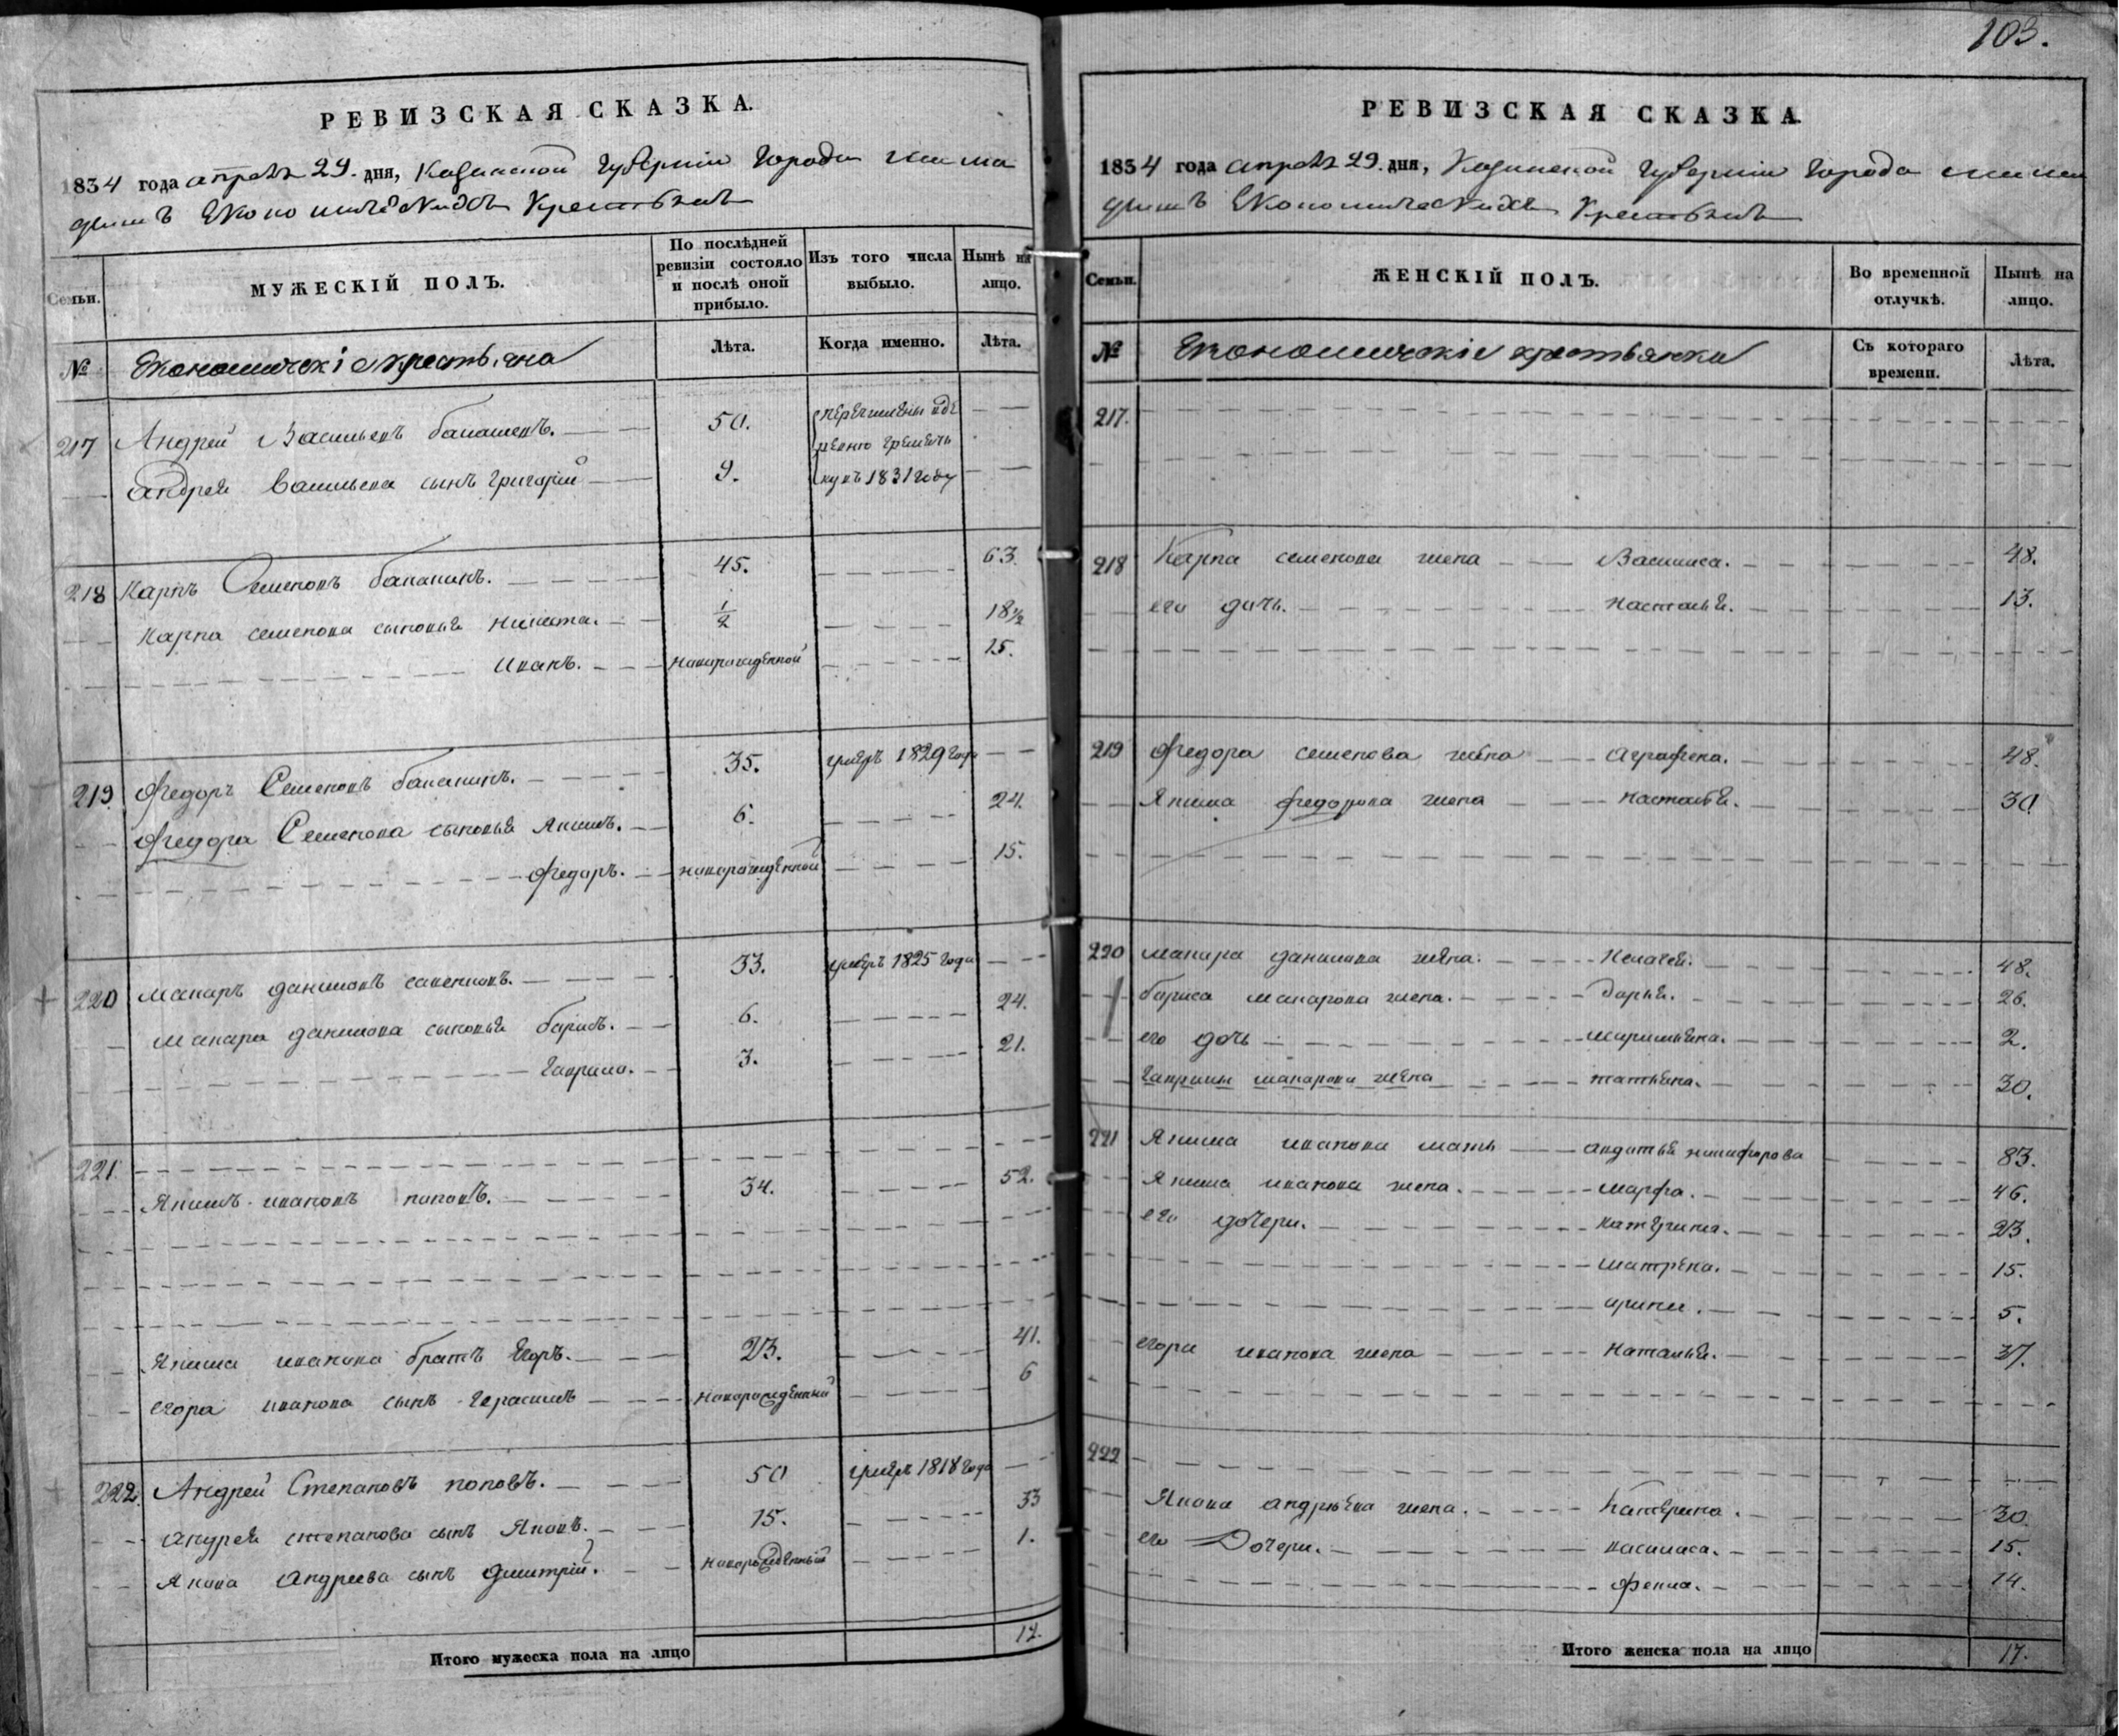 103.
РЕВИЗСКАЯ СКАЗКА.
1834 года апреля 29. дня, Казанской Губернии Города
Экономическихъ Крестьянъ
Семьи.
МУЖЕСКІЙ ПОЛЪ.
По послѣдней ревизіи состояло и послѣ оной прибыло.
Изъ того числа выбыло.
Нынѣ на лицо.
№
Экономическіе крестьяна
Лѣта.
Когда именно.
Лѣта.
217 Андрей Васильевъ 50.
Андрея Васильева сынъ Григорій 9. 1831 году
218 Карпъ Семеновъ 45. 63.
Карпа семенова сыновья Никита. 1/2 18 1/2
Иванъ. новорожденной 15.
219. Федоръ Семеновъ 35. умеръ 1829 года
Федора Семенова сыновья Якимъ. 6. 24.
Федоръ. новорожденной 15.
220 Макаръ даниловъ 33. умеръ 1825 года
Макара данилова сыновья борисъ. 6. 24.
Гаврила. 3. 21.
221.
Якимъ ивановъ поповъ. 34. 52.
Якима иванова братъ Егоръ. 23. 41.
егора иванова сынъ герасимъ новорожденный 6
222. Андрей Степановъ поповъ. 50 умеръ 1818 года
андрея степанова сынъ Яковъ. 15. 33
Якова андреева сынъ дмитрій. новорожденный 1.
Итого мужеска пола на лицо 12.
РЕВИЗСКАЯ СКАЗКА.
1834 года апреля 29. дня, Казанской Губернии Города
Экономическихъ Крестьянъ
Семьи.
ЖЕНСКІЙ ПОЛЪ.
Во временной отлучкѣ.
Нынѣ на лицо.
№
Экономическіе крестьянки
Съ котораго времени.
Лѣта.
217.
218 Карпа семенова жена Василиса. 48.
его дочь. Настасья. 13.
219 Федора семенова жена Аграфена. 48.
Якима федорова жена Настасья. 30
220 макара данилова жена. 48.
бориса макарова жена. Дарья. 26.
его дочь 2.
Гаврилы макарова жена татьяна. 30.
221 Якима иванова мать авдотья никифорова 83.
Якима иванова жена. марфа. 46.
его дочери. катерина. 23.
матрена. 15.
арина. 5.
егора иванова жена Наталья. 37.
222
Якова андреева жена. Катерина. 30.
его Дочери. василиса. 15.
фекла. 14.
Итого женска пола на лицо 17.